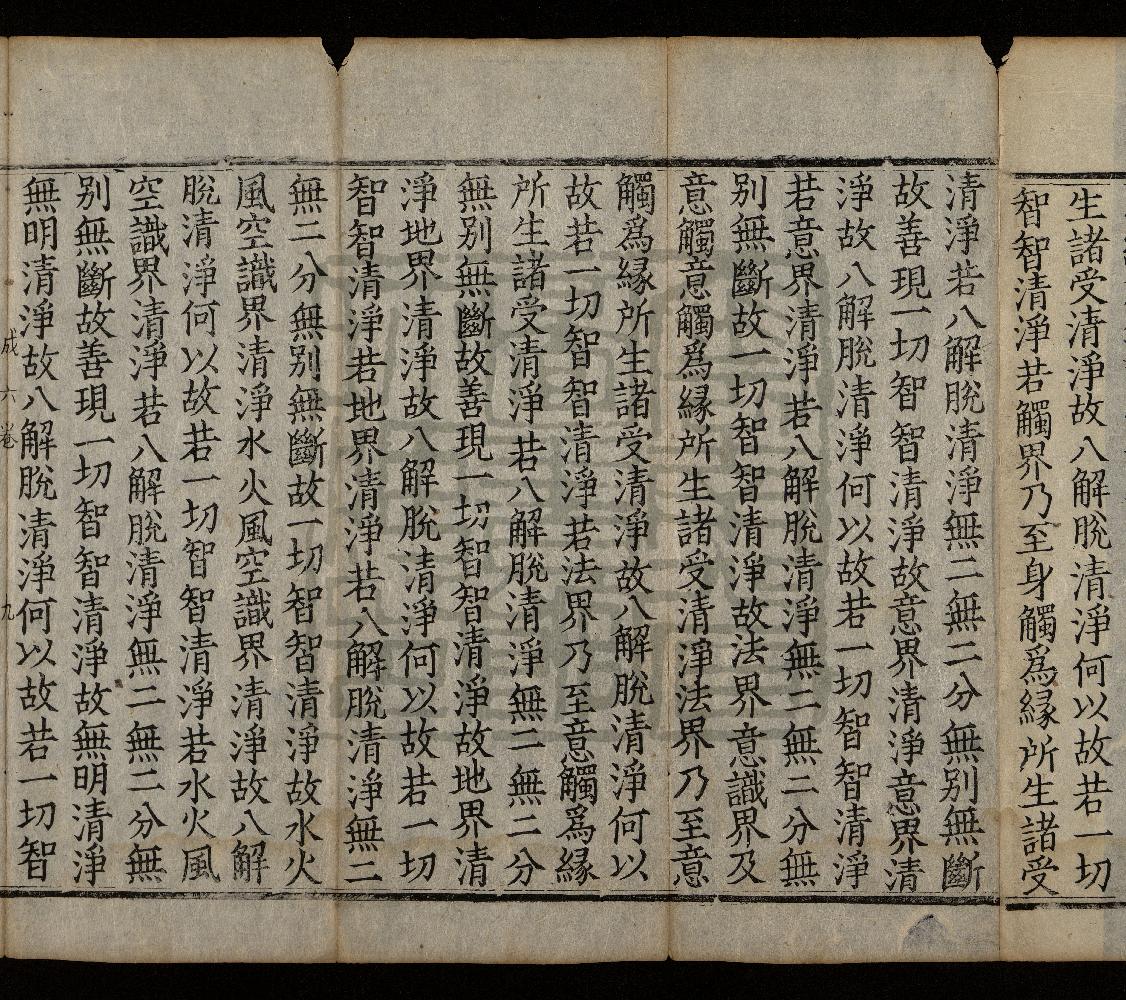 生諸受清淨故八解脫清淨何以故若一切
智智清淨若觸界乃至身觸爲緣所生諸受
清淨若八解脫清淨無二無二分無別無斷
故善現一切智智清淨故意界清淨意界清
淨故八解脫清淨何以故若一切智智清淨
若意界清淨若八解脫清淨無二無二分無
別無斷故一切智智清淨故法界意識界及
意觸意觸爲緣所生諸受清淨法界乃至意
觸爲緣所生諸受清淨故八解脫清淨何以
故若一切智智清淨若法界乃至意觸爲緣
所生諸受清淨若八解脫清淨無二無二分
無別無斷故善現一切智智清淨故地界清
淨地界清淨故八解脫清淨何以故若一切
智智清淨若地界清淨若八解脫清淨無二
無二分無別無斷故一切智智清淨故水火
風空識界清淨水火風空識界清淨故八解
脫清淨何以故若一切智智清淨若水火風
空識界清淨若八解脫清淨無二無二分無
別無斷故善現一切智智清淨故無明清淨
無明清淨故八解脫清淨何以故若一切智
成 六 卷 九